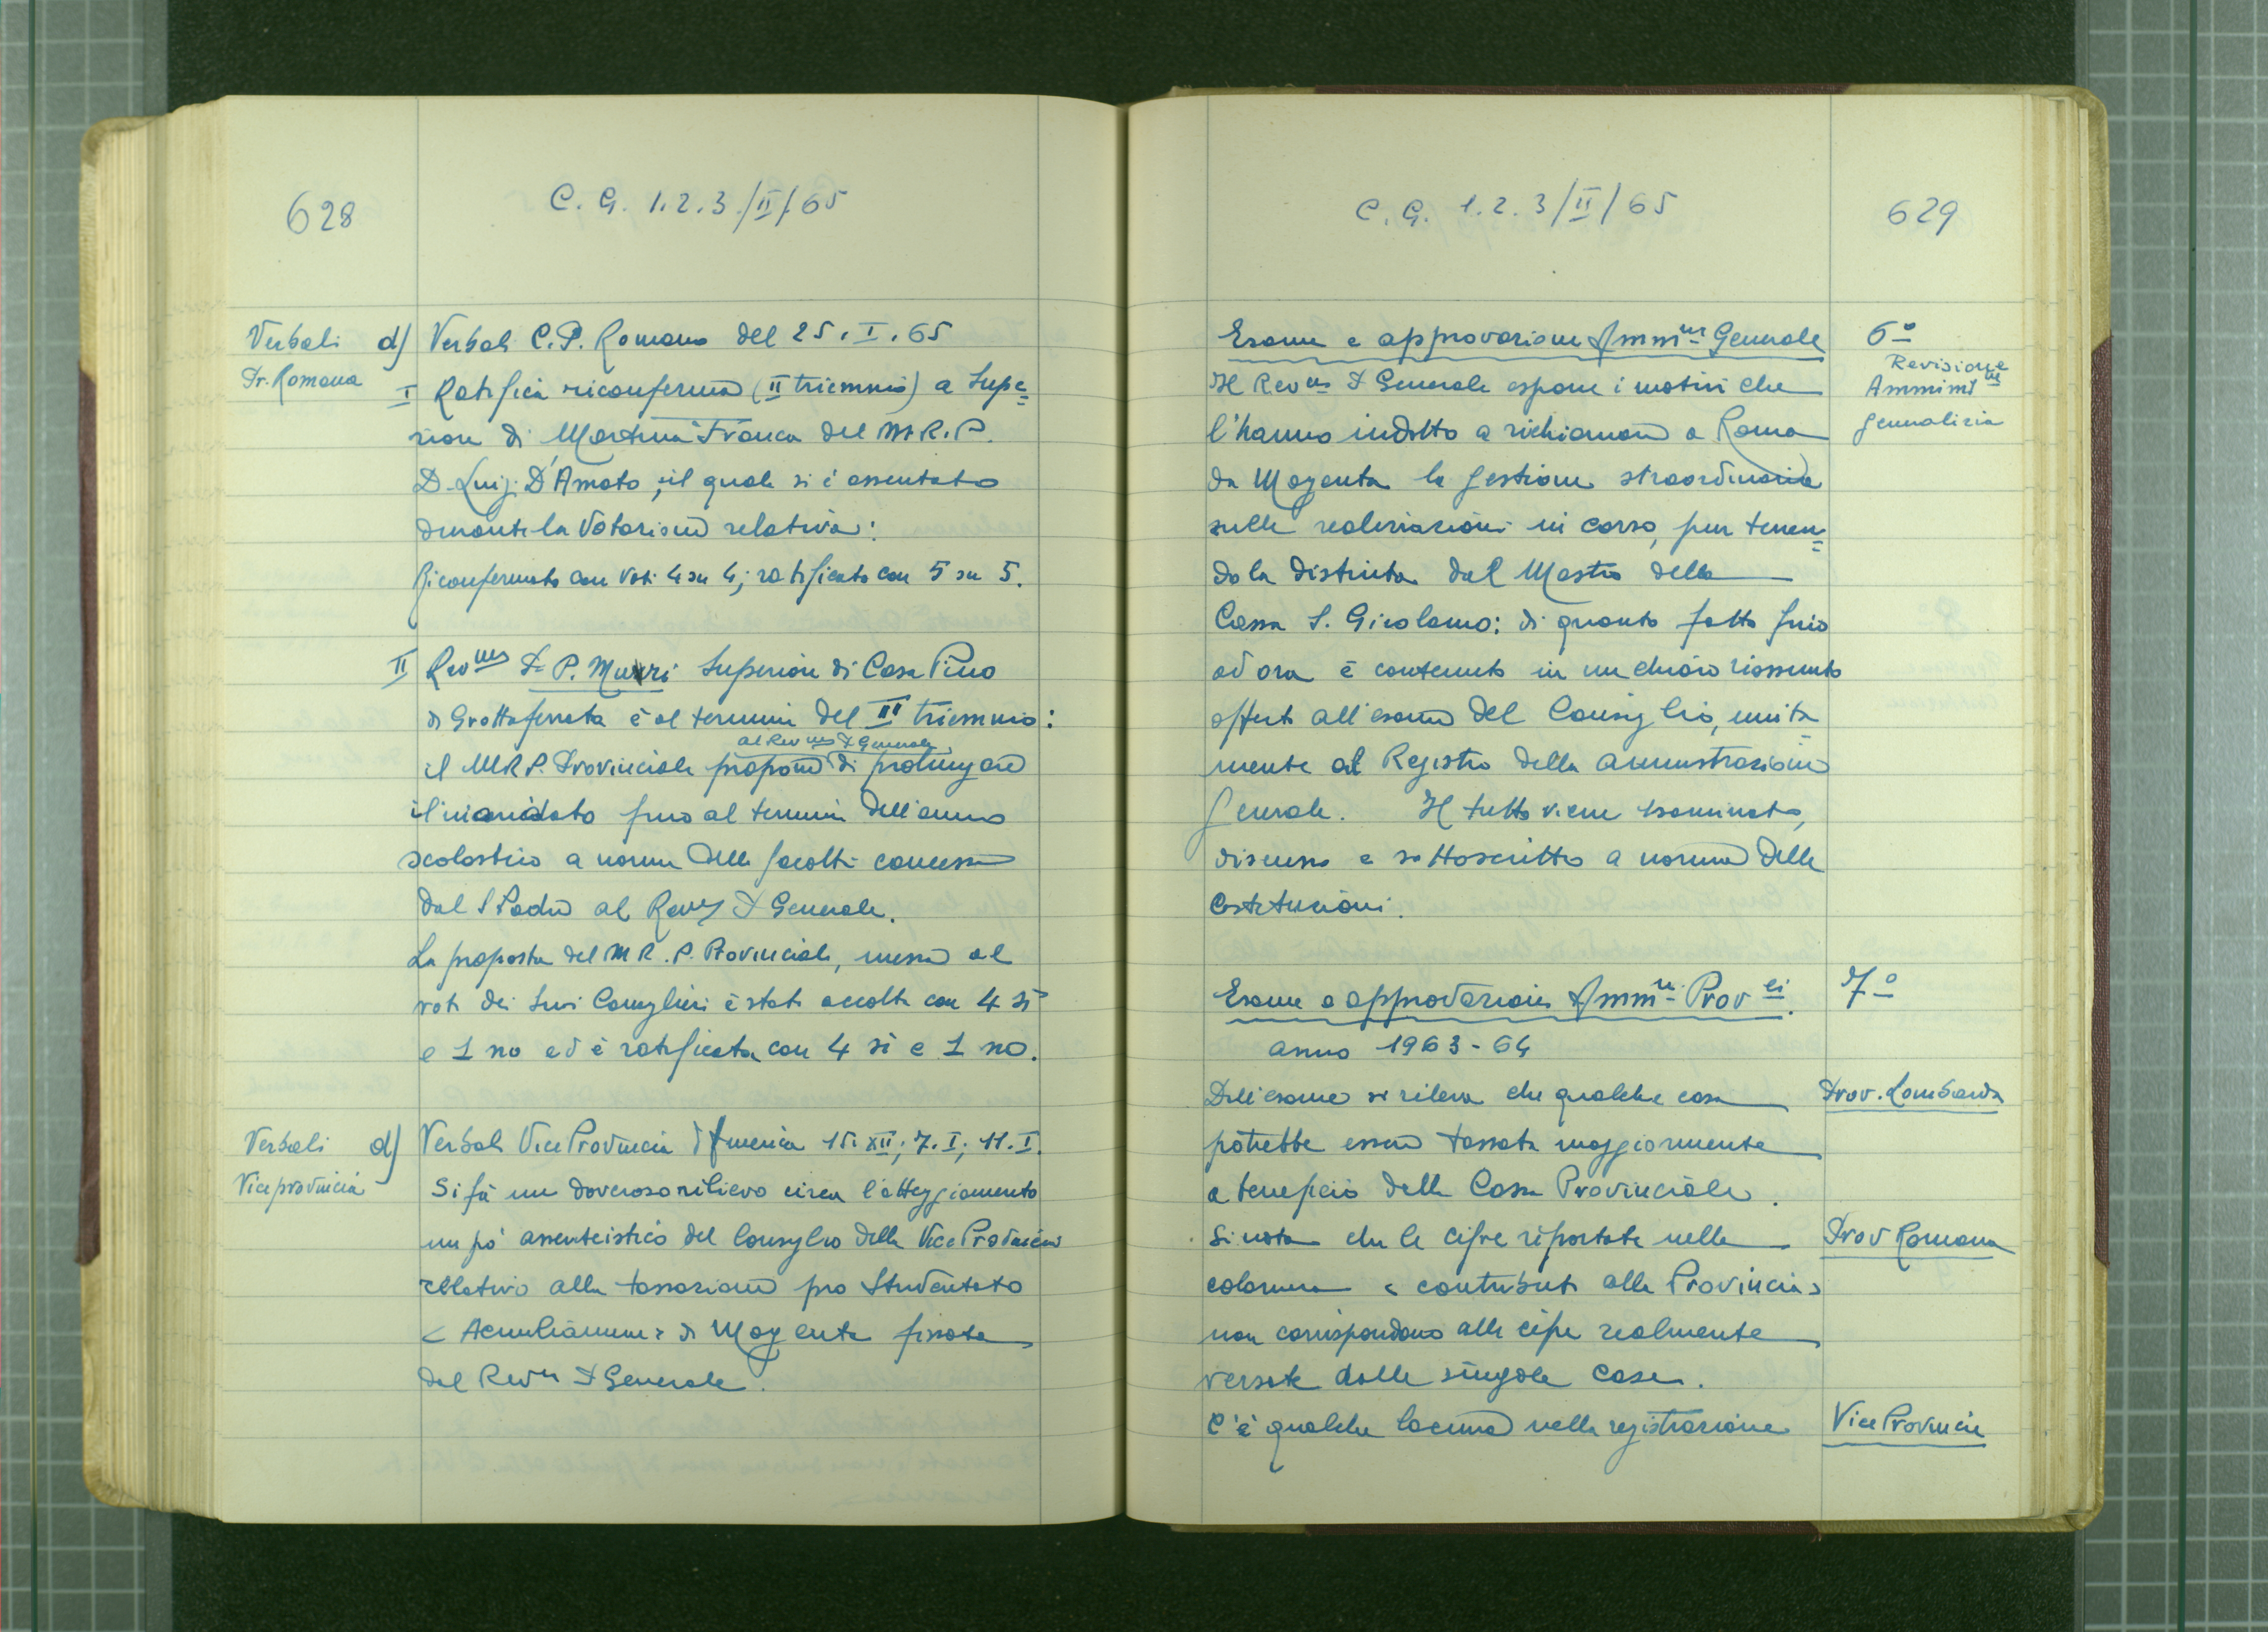 628
C. G. 1.2.3/II/65
Verbali
Pr. Romana
d) Verbali C.P. Romano del 25.I.65
I Ratifica riconferma (II triennio) a Supe=
riore di Martina Franca del M.R.P.
D. Luigi D'Amato, il quale si è assentato
durante la votazione relativa:
Riconfermato con voti 4 su 4; ratificato con 5 su 5.
II Rev.mo P. P. Muzzi Superiore di Casa Pino
di Grottaferrata è al termine del II triennio:
al Rev.mo P Generale
il M.R.P. Provinciale propone di prolungare
il mandato fino al termine dell'anno
scolastico a norma delle facoltà concesse
dal S Padre al Rev.mo P Generale.
La proposta del M R. P. Provinciale, messa ai
voti dei suoi Consiglieri è stata accolta con 4 sì
e 1 no ed è ratificata con 4 sì e 1 no.
Verbali
Viceprovincia
d) Verbali Vice Provincia d'America 15.XII; 7.I; 11.I.
Si fà un doveroso rilievo circa l'atteggiamento
un pò assenteistico del Consiglio della Vice Provincia
relativo alla tassazione pro Studentato
< Aemilianum > di Magenta fissata
dal Rev.mo P Generale.
C. G. 1.2.3/II/65
629
Esame e approvazione Amm.ne Generale
6°
Revisione
Amminist.ne
generalizia
Il Rev.mo P Generale espone i motivi che
l'hanno indotto a richiamare a Roma
da Magenta la gestione straordinaria
sulle realizzazioni in corso, pur tenen=
dola distinta dal Mastro della
Cassa S. Girolamo: di quanto fatto fino
ad ora è contenuto in un chiaro riassunto
offerto all'esame del Consiglio, unita
mente al Registro della amministrazione
Generale. Il tutto viene esaminato,
discusso e sottoscritto a norma delle
Costituzioni.
Esame e approvazione Amm.ne Prov.li.
7°
anno 1963-64
Dall'esame si rileva che qualche casa
Prov. Lombarda
potrebbe essere tassata maggiormente
a beneficio della Cassa Provinciale.
Si nota che le cifre riportate nella
Prov Romana
colonna < contributi alla Provincia>
non corrispondono alle cifre realmente
versate dalle singole case.
C'è qualche lacuna nella registrazione
Vice Provincia